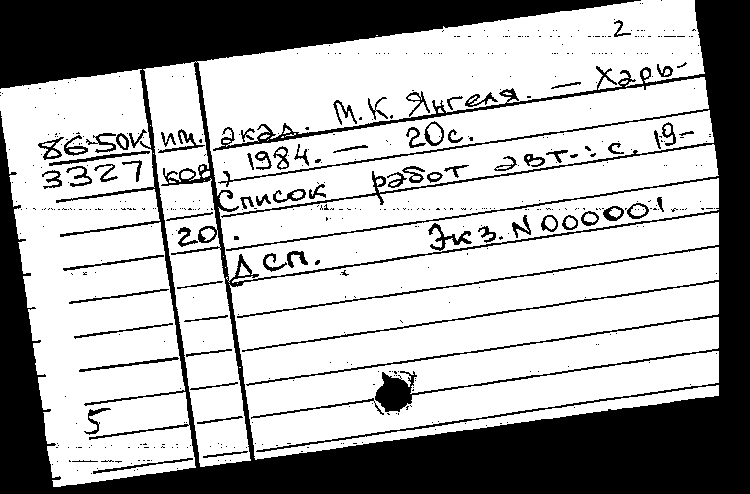 2
86-50К им. акад. М.К. Янгеля. — Харь-
3327 ков, 1984. — 20с.
Список работ авт.: с. 19-
20.
ДСП. Экз. N 000001
5